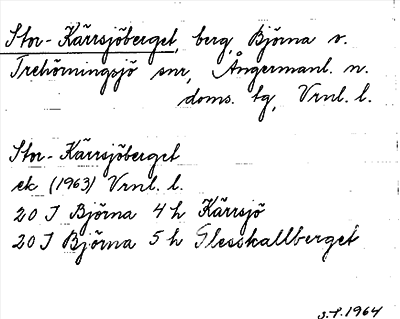 Stor-Kärrsjöberget, berg, Björna s.
Trehörningsjö snr, Ångermanl. n.
doms. tg, Vrnl. l.
Stor-Kärrsjöberget
ek (1963) Vrnl. l.
20 I Björna 4 h Kärrsjö
20 I Björna 5 h Glesskallberget
1964